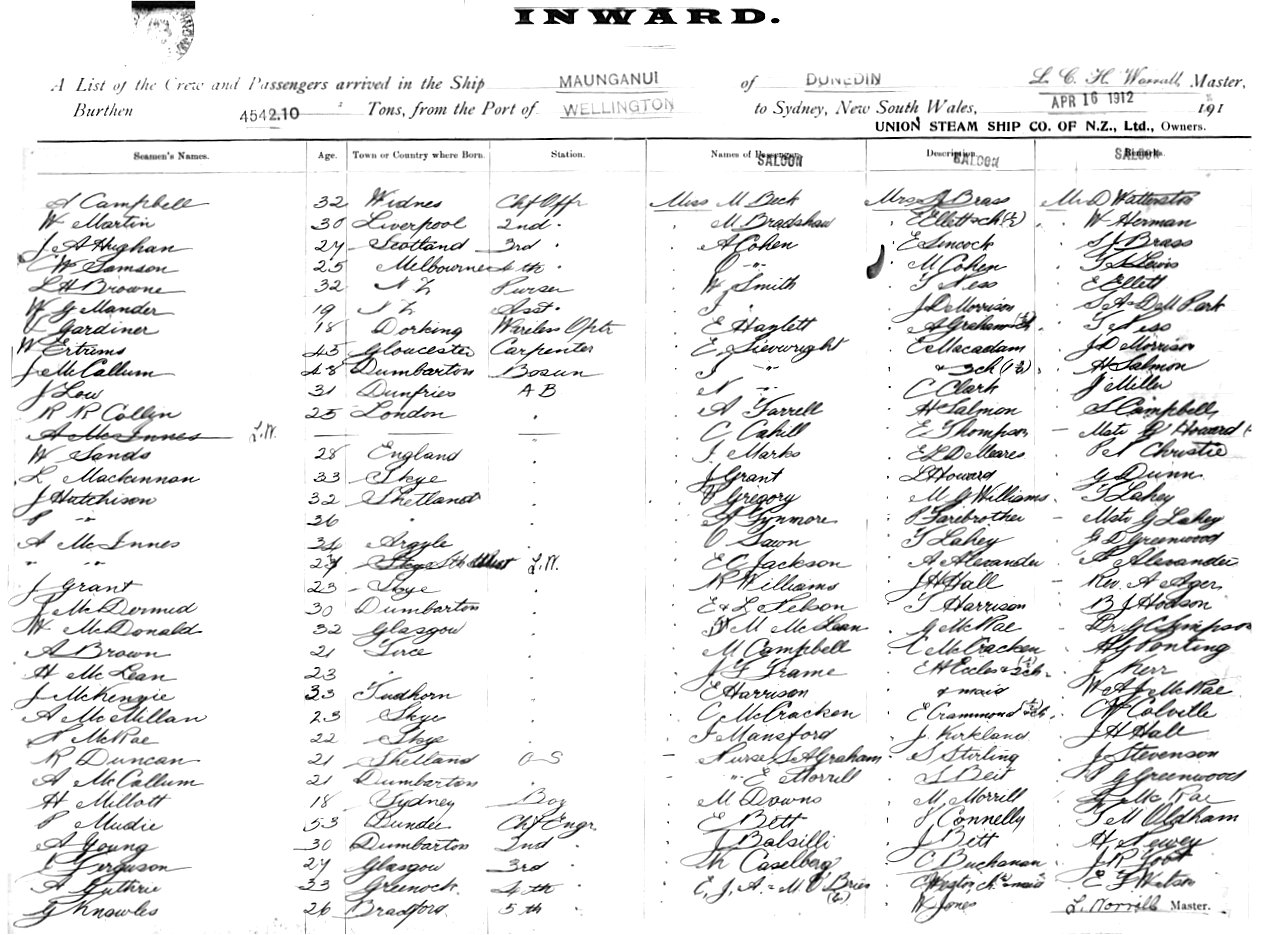 INWARD.
A List of the Crew and Passengers arrived in the Ship MAUNGANUI of DUNEDIN L. C. H. Worrall, Master,
Burthen 4542.10 Tons, from the Port of WELLINGTON to Sydney, New South Wales, APR 16 1912 191
UNION STEAM SHIP CO. OF N.Z., Ltd., Owners.
Seamen's Names. Age. Town or Country where Born. Station. Names of Passengers SALOON Description. SALOON Remarks. SALOON
A Campbell 32 Widnes Chf Offr Miss M Beck Mrs Brass Mr D Watterston
W Martin 30 Liverpool 2nd " M Bradshaw " E Ellett & ch (1/2) " W Herman
J A Hughan 27 Scotland 3rd " " A Cohen " E Sincock " S J Brass
C W Samson 25 Melbourne 4th " " J " " M Cohen " Lewis
L H Browne 32 N Z Purser " W Smith " T Ness " E Ellett
W G Mander 19 N Z Asst " " J " " J D Morrison " S A & D M Park
Gardiner 18 Dorking Wireless Optr " E Haylett " A Graham & ch " T Ness
W Ertrums 45 Gloucester Carpenter " E Sievwright " E Macadam " J D Morrison
J McCallum 48 Dumbarton Bosun " J " & 3 ch (1 1/2) " H Salmon
J Low 31 Dunfries A B " N " " C Clark " J Miller
R R Collin 25 London " " A Farrell " H Salmon " S Campbell
A McInnes L.W. " C Cahill " E Thompson - Mstr G Howard
W Sands 28 England " " J Marks " E L DeMeares " Christie
L Mackinnon 33 Skye " " J Grant " L Howard " G Dunn
J Hutchison 32 Shetland " " Gregory " M G Williams " T Lahey
P " 26 " " " A Fynmore " P Farebrother - Mstr G Lahey
A McInnes 34 Argyle " " O Sawn " T Lahey " G D Greenwood
" " 23 L.W. " E C Jackson " A Alexander " A Alexander
J Grant 23 Skye " " R Williams " J H Hall " Rev. A Ager
J McDermid 30 Dumbarton " " E & L Nelson " T Harrison " B J Hodson
W McDonald 32 Glasgow " " M McLean " G McRae " Dr G C Simpson
A Brown 21 Tiree " " M Campbell " C McCracken " A G Ponting
H McLean 23 " " " J G Frame " E H Eccles & 2 ch " J Kerr
J McKenzie 33 Tudhorn " " E Harrison & maid " W A J McRae
A McMillan 23 Skye " " C McCracken " E Crammond " C W Colville
McRae 22 Skye " " J Mansford " J Kirkland " J H Hall
R Duncan 21 Shetland O S - Nurse S A Graham " S Stirling " J Stevenson
A McCallum 21 Dumbarton " - " E Morrill " S Beit " P G Greenwood
H Millott 18 Sydney Boy " M Downs " M Morrill " McRae
P Mudie 53 Dundee Chf Engr " E Bett " J Connelly " T M Oldham
A Young 30 Dumbarton 2nd " " J Balsilli " J Bett " H Newey
Ferguson 27 Glasgow 3rd " " M Caselberg " C Buchanan " J R Foot
A Guthrie 33 Greenock 4th " " E, J, A & M O'Brien " Weston, ch & maid " E T Watson
G Knowles 26 Bradford 5th " " W Jones L. Worrall Master.